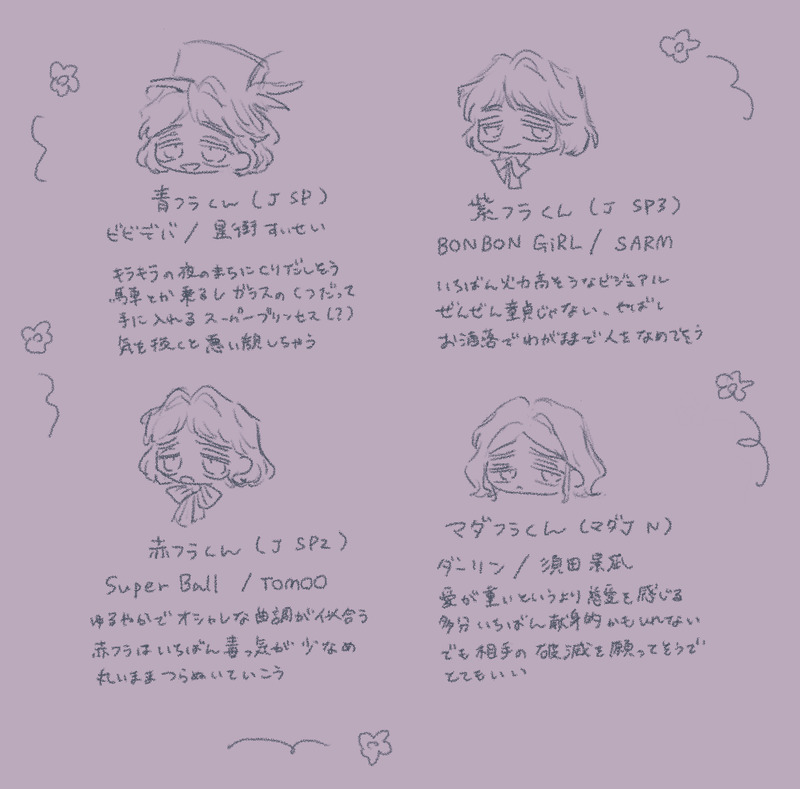 青フラくん (J SP)
ビビデバ / 星街すいせい
キラキラの夜のまちにくりだしそう
馬車とか乗るし ガラスのくつだって
手に入れる スーパープリンセス(?)
気を抜くと 悪い顔しちゃう
紫フラくん (J SP3)
BONBON GiRL / SARM
いちばん火力高そうなビジュアル
ぜんぜん童貞じゃない、やばい
お洒落でわがままで人をなめてそう
赤フラくん (J SP2)
Super Ball / TOMOO
ゆるやかで オシャレな曲調が似合う
赤フラはいちばん毒っ気が少なめ
丸いまま つらぬいていこう
マダフラくん (マダJ N)
ダーリン / 須田景凪
愛が重いというより 慈愛を感じる
多分いちばん献身的かもしれない
でも相手の破滅を願ってそうで
とてもいい